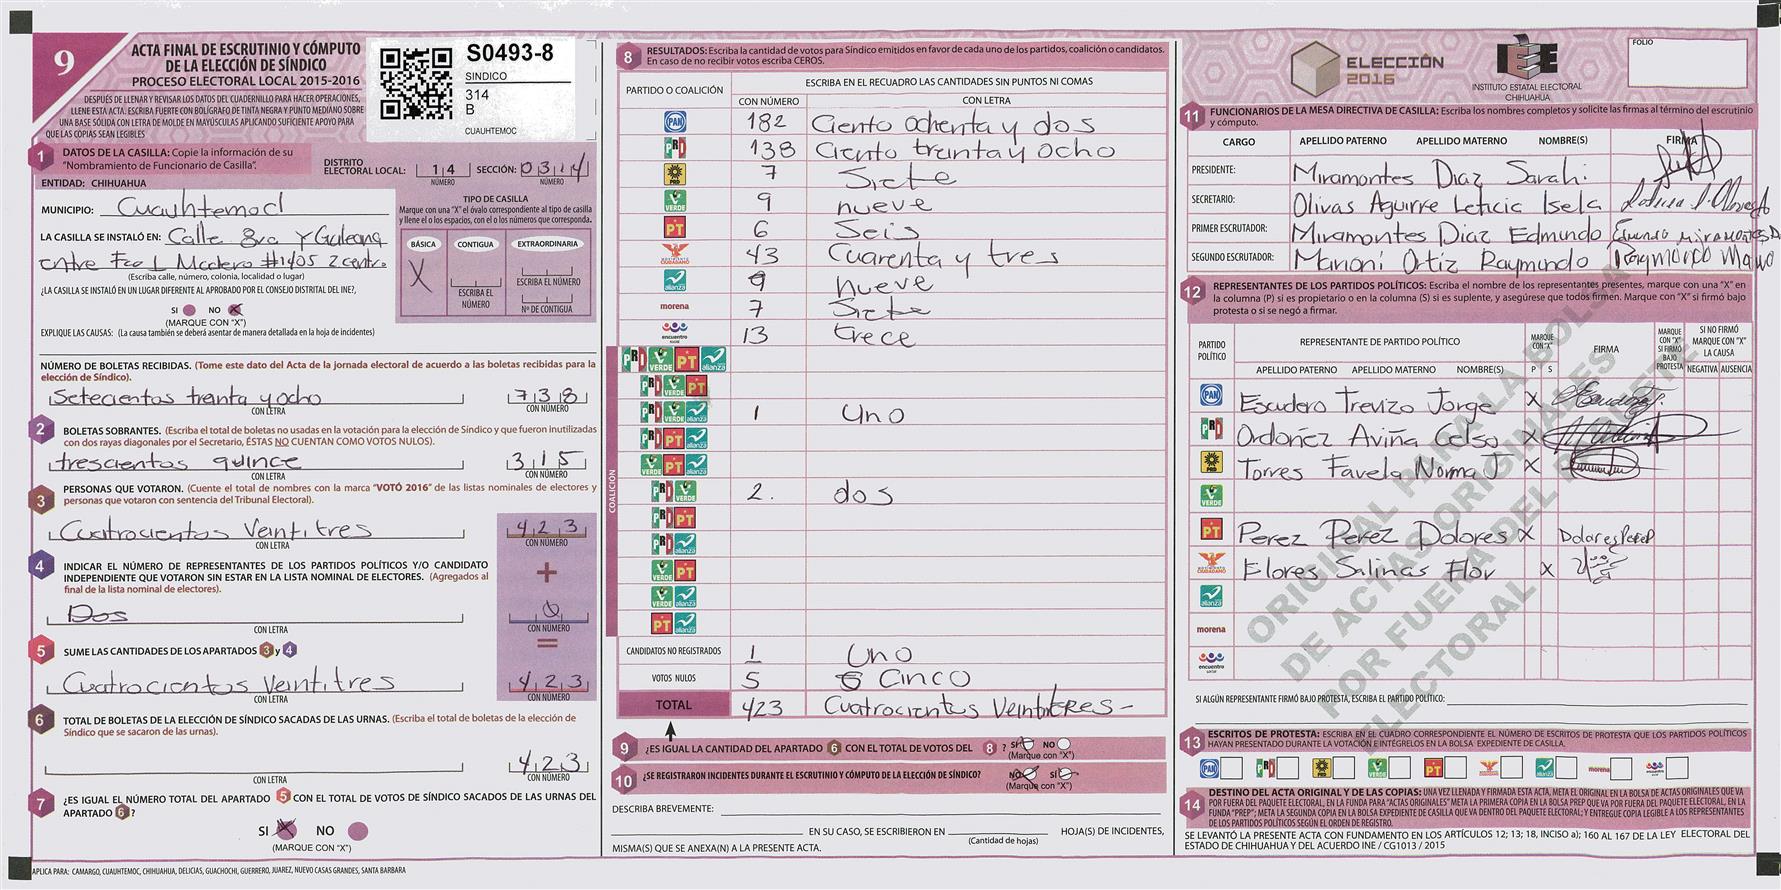 9
ACTA FINAL DE ESCRUTINIO Y CÓMPUTO
DE LA ELECCIÓN DE SÍNDICO
PROCESO ELECTORAL LOCAL 2015-2016
DESPUÉS DE LLENAR Y REVISAR LOS DATOS DEL CUADERNILLO PARA HACER OPERACIONES,
LLENE ESTA ACTA. ESCRIBA FUERTE CON BOLÍGRAFO DE TINTA NEGRA Y PUNTO MEDIANO SOBRE
UNA BASE SÓLIDA CON LETRA DE MOLDE EN MAYÚSCULAS APLICANDO SUFICIENTE APOYO PARA
QUE LAS COPIAS SEAN LEGIBLES
S0493-8
SINDICO
314
B
CUAUHTEMOC
1 DATOS DE LA CASILLA: Copie la información de su
"Nombramiento de Funcionario de Casilla".
DISTRITO ELECTORAL LOCAL: 14 NÚMERO SECCIÓN: 0314 NÚMERO
ENTIDAD: CHIHUAHUA
MUNICIPIO: Cuauhtemoc
LA CASILLA SE INSTALÓ EN: Calle 8va Y Galeana
entre Fco I Madero #1405 Z centro
(Escriba calle, número, colonia, localidad o lugar)
TIPO DE CASILLA
Marque con una "X" el óvalo correspondiente al tipo de casilla
y llene el o los espacios, con el o los números que corresponda.
BÁSICA CONTIGUA EXTRAORDINARIA
X ESCRIBA EL NÚMERO ESCRIBA EL NÚMERO
Nº DE CONTIGUA
¿LA CASILLA SE INSTALÓ EN UN LUGAR DIFERENTE AL APROBADO POR EL CONSEJO DISTRITAL DEL INE?,
SI NO X
(MARQUE CON "X")
EXPLIQUE LAS CAUSAS: (La causa también se deberá asentar de manera detallada en la hoja de incidentes)
NÚMERO DE BOLETAS RECIBIDAS. (Tome este dato del Acta de la jornada electoral de acuerdo a las boletas recibidas para la
elección de Síndico).
Setecientos treinta y ocho 738
CON LETRA CON NÚMERO
2 BOLETAS SOBRANTES. (Escriba el total de boletas no usadas en la votación para la elección de Síndico y que fueron inutilizadas
con dos rayas diagonales por el Secretario, ÉSTAS NO CUENTAN COMO VOTOS NULOS).
trescientos quince 315
CON LETRA CON NÚMERO
3 PERSONAS QUE VOTARON. (Cuente el total de nombres con la marca "VOTÓ 2016" de las listas nominales de electores y
personas que votaron con sentencia del Tribunal Electoral).
Cuatrocientos Veintitres 423
CON LETRA CON NÚMERO
4 INDICAR EL NÚMERO DE REPRESENTANTES DE LOS PARTIDOS POLÍTICOS Y/O CANDIDATO
INDEPENDIENTE QUE VOTARON SIN ESTAR EN LA LISTA NOMINAL DE ELECTORES. (Agregados al
final de la lista nominal de electores).
+
Dos 0
CON LETRA CON NÚMERO
=
5 SUME LAS CANTIDADES DE LOS APARTADOS 3 y 4
Cuatrocientos Veintitres 423
CON LETRA CON NÚMERO
6 TOTAL DE BOLETAS DE LA ELECCIÓN DE SÍNDICO SACADAS DE LAS URNAS. (Escriba el total de boletas de la elección de
Síndico que se sacaron de las urnas).
423
CON LETRA CON NÚMERO
7 ¿ES IGUAL EL NÚMERO TOTAL DEL APARTADO 5 CON EL TOTAL DE VOTOS DE SÍNDICO SACADOS DE LAS URNAS DEL
APARTADO 6?
SI X NO
(MARQUE CON "X")
APLICA PARA: CAMARGO, CUAUHTEMOC, CHIHUAHUA, DELICIAS, GUACHOCHI, GUERRERO, JUAREZ, NUEVO CASAS GRANDES, SANTA BARBARA
8 RESULTADOS: Escriba la cantidad de votos para Síndico emitidos en favor de cada uno de los partidos, coalición o candidatos.
En caso de no recibir votos escriba CEROS.
PARTIDO O COALICIÓN ESCRIBA EN EL RECUADRO LAS CANTIDADES SIN PUNTOS NI COMAS
CON NÚMERO CON LETRA
PAN 182 Ciento ochenta y dos
PRI 138 Ciento treinta y ocho
PRD 7 Siete
VERDE 9 nueve
PT 6 Seis
MOVIMIENTO CIUDADANO 43 Cuarenta y tres
alianza 9 nueve
morena 7 Siete
encuentro social 13 trece
COALICIÓN
PRI VERDE PT alianza
PRI VERDE PT
PRI VERDE alianza 1 Uno
PRI PT alianza
VERDE PT alianza
PRI VERDE 2. dos
PRI PT
PRI alianza
VERDE PT
VERDE alianza
PT alianza
CANDIDATOS NO REGISTRADOS 1 Uno
VOTOS NULOS 5 Cinco
TOTAL 423 Cuatrocientos Veintitres -
9 ¿ES IGUAL LA CANTIDAD DEL APARTADO 6 CON EL TOTAL DE VOTOS DEL 8 ? SI NO
(Marque con "X")
10 ¿SE REGISTRARON INCIDENTES DURANTE EL ESCRUTINIO Y CÓMPUTO DE LA ELECCIÓN DE SÍNDICO? NO SI
(Marque con "X")
DESCRIBA BREVEMENTE:
EN SU CASO, SE ESCRIBIERON EN HOJA(S) DE INCIDENTES,
(Cantidad de hojas)
MISMA(S) QUE SE ANEXA(N) A LA PRESENTE ACTA.
ELECCIÓN
2016
IEE
INSTITUTO ESTATAL ELECTORAL
CHIHUAHUA
FOLIO
11 FUNCIONARIOS DE LA MESA DIRECTIVA DE CASILLA: Escriba los nombres completos y solicite las firmas al término del escrutinio
y cómputo.
CARGO APELLIDO PATERNO APELLIDO MATERNO NOMBRE(S) FIRMA
PRESIDENTE: Miramontes Diaz Sarahi
SECRETARIO: Olivas Aguirre Leticia Isela
PRIMER ESCRUTADOR: Miramontes Diaz Edmundo
SEGUNDO ESCRUTADOR: Marioni Ortiz Raymundo
12 REPRESENTANTES DE LOS PARTIDOS POLÍTICOS: Escriba el nombre de los representantes presentes, marque con una "X" en
la columna (P) si es propietario o en la columna (S) si es suplente, y asegúrese que todos firmen. Marque con "X" si firmó bajo
protesta o si se negó a firmar.
PARTIDO POLÍTICO REPRESENTANTE DE PARTIDO POLÍTICO MARQUE CON "X" FIRMA MARQUE CON "X" SI FIRMÓ BAJO PROTESTA SI NO FIRMÓ MARQUE CON "X" LA CAUSA
APELLIDO PATERNO APELLIDO MATERNO NOMBRE(S) P S NEGATIVA AUSENCIA
PAN Escudero Trevizo Jorge X
PRI Ordoñez Aviña Celso X
PRD Torres Favela Norma J X
VERDE
PT Perez Perez Dolores X Dolores Perez
MOVIMIENTO CIUDADANO Flores Salinas Flor X
alianza
morena
encuentro social
ORIGINAL PARA LA BOLSA
DE ACTAS ORIGINALES
POR FUERA DEL PAQUETE
ELECTORAL
SI ALGÚN REPRESENTANTE FIRMÓ BAJO PROTESTA, ESCRIBA EL PARTIDO POLÍTICO:
13 ESCRITOS DE PROTESTA: ESCRIBA EN EL CUADRO CORRESPONDIENTE EL NÚMERO DE ESCRITOS DE PROTESTA QUE LOS PARTIDOS POLÍTICOS
HAYAN PRESENTADO DURANTE LA VOTACIÓN E INTÉGRELOS EN LA BOLSA EXPEDIENTE DE CASILLA.
PAN PRI PRD VERDE PT MOVIMIENTO CIUDADANO alianza morena encuentro social
14 DESTINO DEL ACTA ORIGINAL Y DE LAS COPIAS: UNA VEZ LLENADA Y FIRMADA ESTA ACTA, META EL ORIGINAL EN LA BOLSA DE ACTAS ORIGINALES QUE VA
POR FUERA DEL PAQUETE ELECTORAL, EN LA FUNDA PARA "ACTAS ORIGINALES" META LA PRIMERA COPIA EN LA BOLSA PREP QUE VA POR FUERA DEL PAQUETE ELECTORAL, EN LA
FUNDA "PREP"; META LA SEGUNDA COPIA EN LA BOLSA EXPEDIENTE DE CASILLA QUE VA DENTRO DEL PAQUETE ELECTORAL; Y ENTREGUE COPIA LEGIBLE A LOS REPRESENTANTES
DE LOS PARTIDOS POLÍTICOS SEGÚN EL ORDEN DE REGISTRO.
SE LEVANTÓ LA PRESENTE ACTA CON FUNDAMENTO EN LOS ARTÍCULOS 12; 13; 18, INCISO a); 160 AL 167 DE LA LEY ELECTORAL DEL
ESTADO DE CHIHUAHUA Y DEL ACUERDO INE / CG1013 / 2015